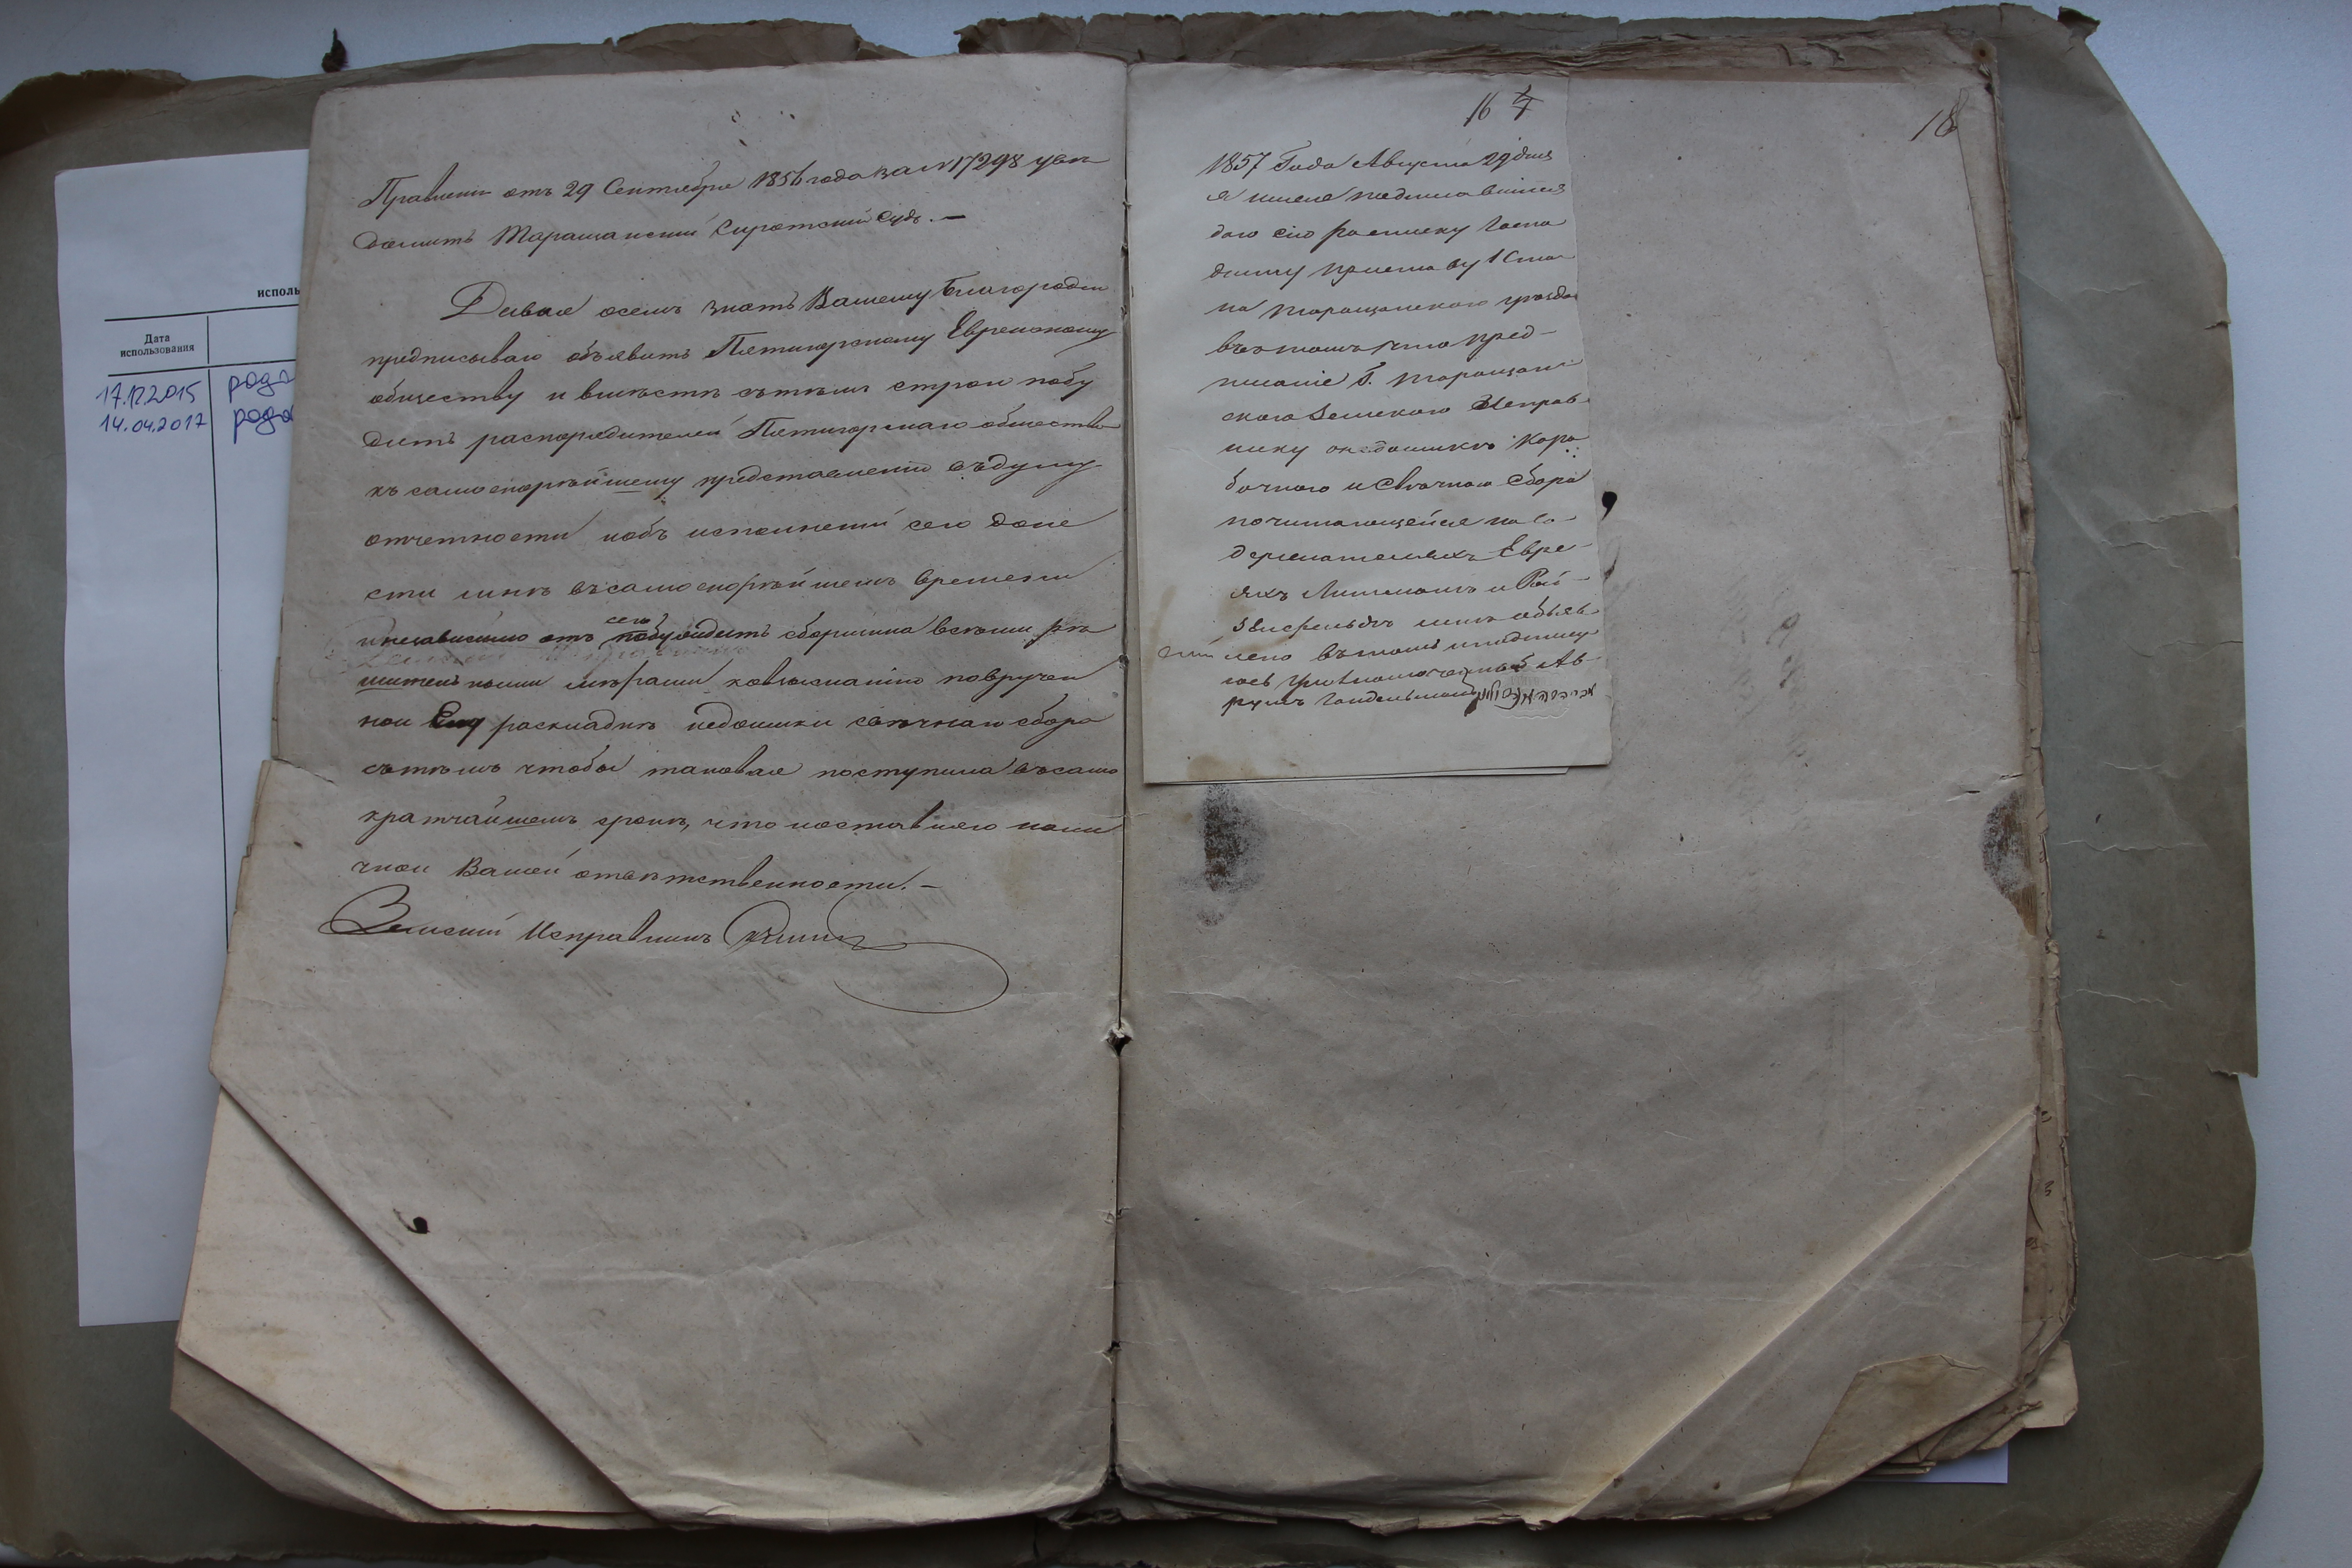 исполь
Дата
использования
17.12.2015 родо
14.04.2017 родо
Правленія отъ 29 Сентября 1856 года за № 17298 увѣ
домитъ Таращанскій Сиротскій Судъ. —
Давая осемъ знать Вашему Благородію
предписываю объявить Пятигорскому Еврейскому
обществу и вмѣстѣ сътѣмъ строго побу
дить распорядителей Пятигорскаго общества
къ самоскорѣйшему представленію въ думу
отчетности иобъ исполненіи сего доне
сти мнѣ въсамоскорѣйшемъ времени
инезависимо отъ сего побудить сборщика всѣми рѣ
шительными мѣрами ковзысканію поврученной
ной Ему раскладкѣ недоимки свѣчнаго сбора
сътѣмъ чтобы таковая поступила въсамо
кратчайшемъ срокѣ, что иоставляю наличной
чной Вашей ответственности. —
Земскій Исправникъ
16
18
1857 Года Августа 29 дня
я ниже подписавшійся
даю сію росписку Госпо
дину приставу 1 Стана
на таращанского уѣзда
вътомъ что пред-
писаніе Г. таращан
ского Земского Исправ
нику онедоимкѣ Коро
бочного и Свѣчного Сбора
почитающейся на Со-
держателяхъ Евре-
яхъ Литманъ и Рой-
звисфельдъ мнѣ объяв
лено вътомъ иподпису
юсь уполномоченный Ав-
румъ Гандельманъ